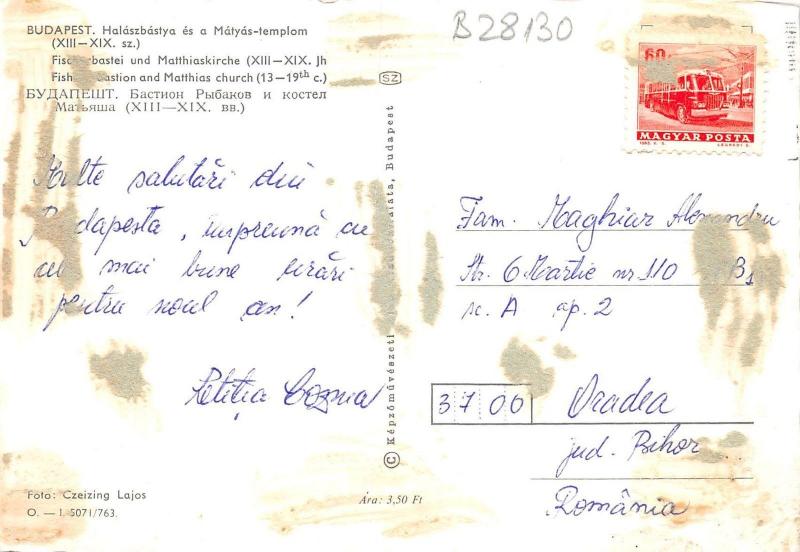 BUDAPEST. Halászbástya és a Mátyás-templom
(XIII—XIX. sz.)
Fischerbastei und Matthiaskirche (XIII—XIX. Jh
Fisher Bastion and Matthias church (13—19th c.)
БУДАПЕШТ. Бастион Рыбаков и костел
Матьяша (XIII—XIX. вв.)
B28130
SZ
60
MAGYAR POSTA
Multe salutări din
Budapesta, împreună cu
cele mai bune urări
pentru noul an!
Letiția
Fam. Maghiar Alexandru
Str. 6 Martie nr 110 B1
sc. A ap. 2
3700 Oradea
jud. Bihor
România
© Képzőművészeti Budapest
Foto: Czeizing Lajos
O. — I. 5071/763.
Ára: 3,50 Ft